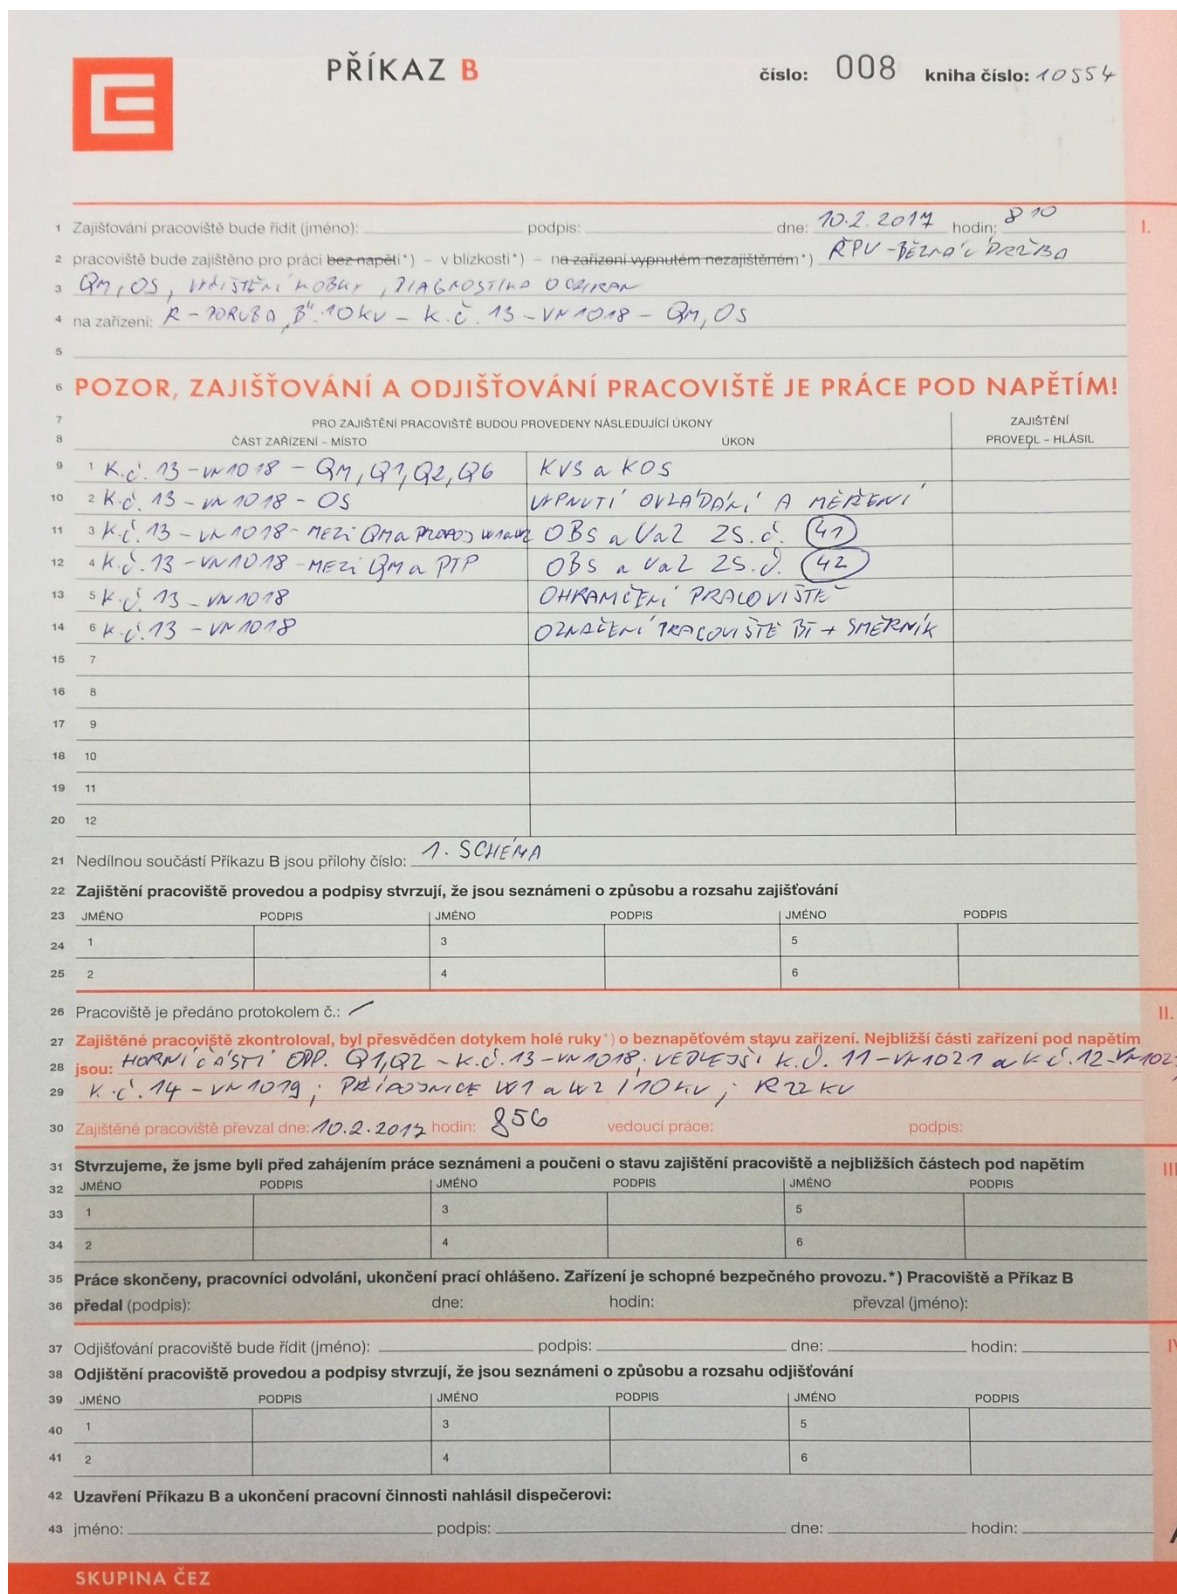 PŘÍKAZ B číslo: 008 kniha číslo: 10554
1 Zajišťování pracoviště bude řídit (jméno): podpis: dne: 10.2.2017 hodin: 8 10 I.
2 pracoviště bude zajištěno pro práci bez napětí*) – v blízkosti*) – na zařízení vypnutém nezajištěném*) ŘPU - BĚŽNÁ ÚDRŽBA
3 QM, OS, VYČIŠTĚNÍ KOBKY, DIAGNOSTIKA OCHRAN
4 na zařízení: R - PORUBA "B" 10kV - K.č. 13 - VN1018 - QM, OS
5
6 POZOR, ZAJIŠŤOVÁNÍ A ODJIŠŤOVÁNÍ PRACOVIŠTĚ JE PRÁCE POD NAPĚTÍM!
7 PRO ZAJIŠTĚNÍ PRACOVIŠTĚ BUDOU PROVEDENY NÁSLEDUJÍCÍ ÚKONY ZAJIŠTĚNÍ
8 ČÁST ZAŘÍZENÍ – MÍSTO ÚKON PROVEDL – HLÁSIL
9 1 K.č. 13 - VN1018 - QM, Q1, Q2, Q6 KVS a KOS
10 2 K.č. 13 - VN1018 - OS VYPNUTÍ OVLÁDÁNÍ A MĚŘENÍ
11 3 K.č. 13 - VN1018 - MEZI QM a PROPOJ W1aW2 OBS a VaZ ZS.č. 41
12 4 K.č. 13 - VN1018 - MEZI QM a PTP OBS a VaZ ZS.č. 42
13 5 K.č. 13 - VN1018 OHRANIČENÍ PRACOVIŠTĚ
14 6 K.č. 13 - VN1018 OZNAČENÍ PRACOVIŠTĚ BT + SMĚRNÍK
15 7
16 8
17 9
18 10
19 11
20 12
21 Nedílnou součástí Příkazu B jsou přílohy číslo: 1. SCHÉMA
22 Zajištění pracoviště provedou a podpisy stvrzují, že jsou seznámeni o způsobu a rozsahu zajišťování
23 JMÉNO PODPIS JMÉNO PODPIS JMÉNO PODPIS
24 1 3 5
25 2 4 6
26 Pracoviště je předáno protokolem č.: II.
27 Zajištěné pracoviště zkontroloval, byl přesvědčen dotykem holé ruky*) o beznapěťovém stavu zařízení. Nejbližší části zařízení pod napětím
28 jsou: HORNÍ ČÁSTI ODP. Q1, Q2 - K.č. 13 - VN1018; VEDLEJŠÍ K.č. 11 - VN1021 a K.č. 12 - VN102
29 K.č. 14 - VN1019; PŘÍPOJNICE W1 a W2 / 10kV; R22 kV
30 Zajištěné pracoviště převzal dne: 10.2.2017 hodin: 8 56 vedoucí práce: podpis:
31 Stvrzujeme, že jsme byli před zahájením práce seznámeni a poučeni o stavu zajištění pracoviště a nejbližších částech pod napětím III
32 JMÉNO PODPIS JMÉNO PODPIS JMÉNO PODPIS
33 1 3 5
34 2 4 6
35 Práce skončeny, pracovníci odvoláni, ukončení prací ohlášeno. Zařízení je schopné bezpečného provozu.*) Pracoviště a Příkaz B
36 předal (podpis): dne: hodin: převzal (jméno):
37 Odjišťování pracoviště bude řídit (jméno): podpis: dne: hodin: IV
38 Odjištění pracoviště provedou a podpisy stvrzují, že jsou seznámeni o způsobu a rozsahu odjišťování
39 JMÉNO PODPIS JMÉNO PODPIS JMÉNO PODPIS
40 1 3 5
41 2 4 6
42 Uzavření Příkazu B a ukončení pracovní činnosti nahlásil dispečerovi:
43 jméno: podpis: dne: hodin:
SKUPINA ČEZ